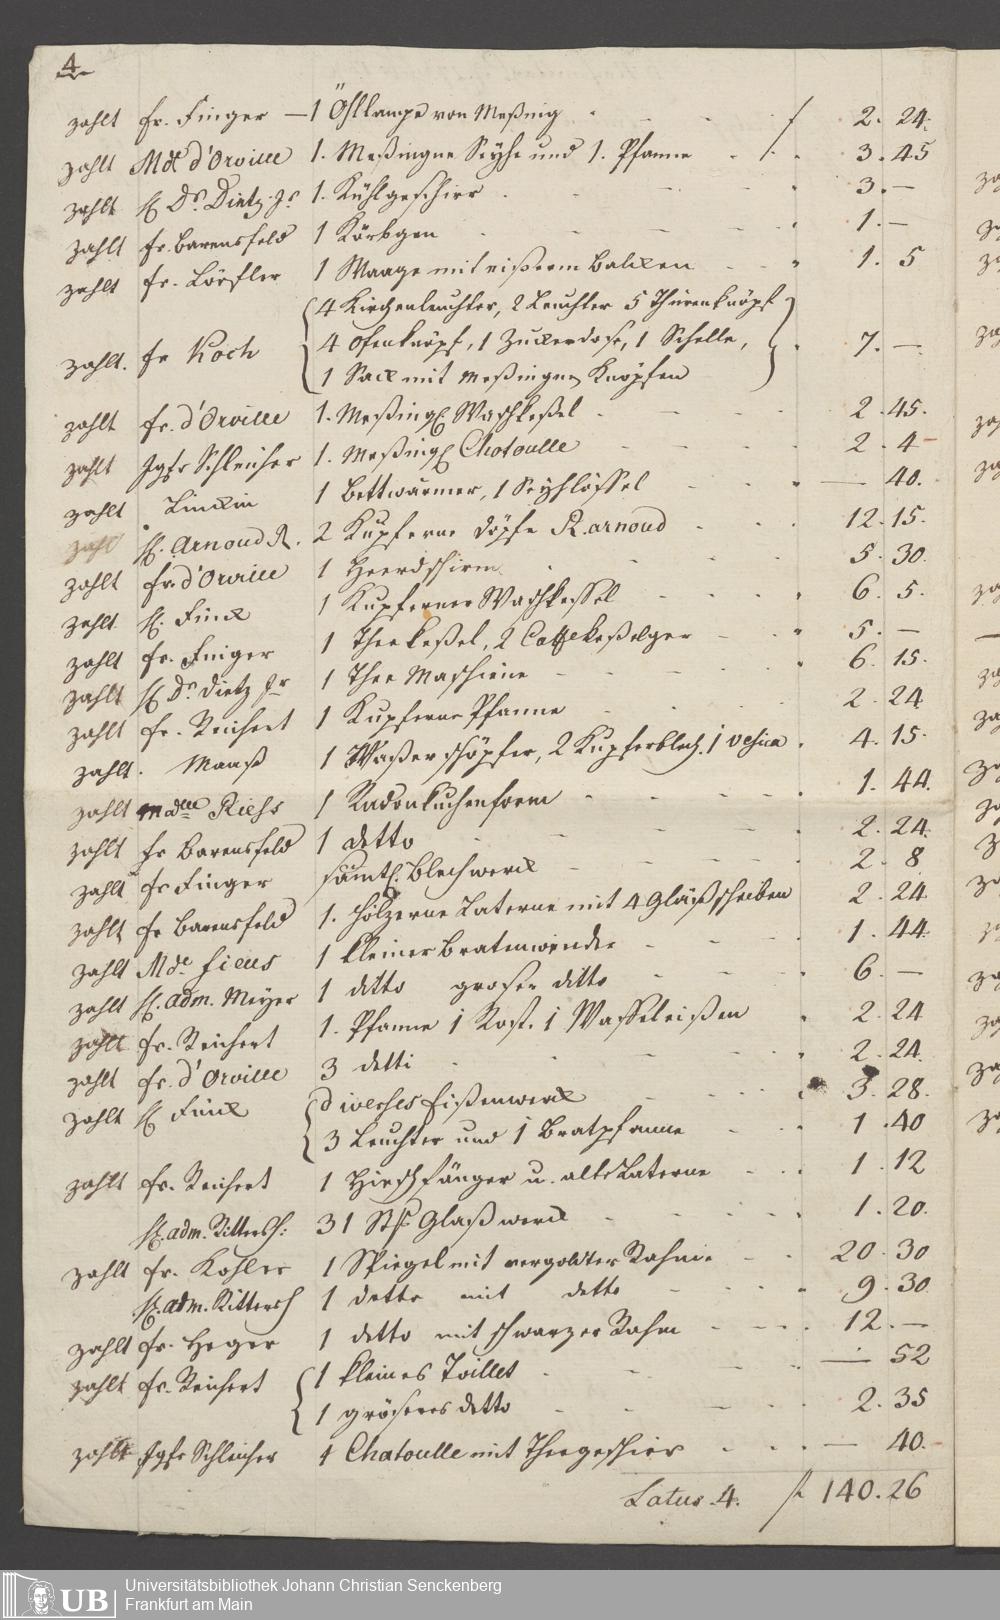 4
zahlt fr. Finger — 1 Öhllampe von Meßing f 2. 24.
zahlt Mdt d'Orville 1. Meßingne Seyhe und 1. Pfanne 3. 45
zahlt H Dr. Dietz Jr 1. Kühlgeschirr 3. —
zahlt fr. Barensfeld 1 Körbgen 1. —
zahlt fr. Lörsler 1 Waage mit eißerm Balcken 1. 5
4 Kirchenleuchter, 2 Leuchter 5 Thürenknöpf
zahlt. fr Koch 4 Ofenknöpf, 1 Zuckerdose, 1 Schelle, 7. —
1 Sack mit Meßingnen Knöpfen
zahlt fr. d'Orville 1. Meßing Waschkeßel 2. 45.
zahlt Jgfr Schleicher 1. Meßing Chatoulle 2. 4
zahlt Linckin 1 Bettwärmer, 1 Seyhlöffel — 40.
zahlt H. Arnoud R. 2 Kupferne Döpfe R. arnoud 12. 15.
zahlt fr. d'Orville 1 Heerdschirm 5. 30.
zahlt H. Finck 1 Kupferner Waschkessel 6. 5.
zahlt fr. Finger 1 Theekeßel, 2 Caffekeßelger 5. —
zahlt H Dr. Dietz Jr 1 Thee Maschiene 6. 15.
zahlt fr. Reichert 1 Kupferne Pfanne 2. 24
zahlt. Maaß 1 Waßerschöpfer, 2 Kupferblech. 1 Vesica 4. 15.
zahlt Mdlle Riehs 1 Radonkuchenform 1. 44.
zahlt fr Barensfeld 1 detto 2. 24.
zahlt fr Finger sämtl. Blechwerck 2. 8
zahlt fr Barensfeld 1. Hölzerne Laterne mit 4 Gläßscheiben 2. 24
zahlt Mde fieus 1 kleiner Bratenwender 1. 44.
zahlt H. adm. Meyer 1 ditto groser ditto 6. —
zahlt fr. Reichert 1. Pfanne 1 Rost. 1 Waffeleißen 2. 24
zahlt fr. d'Orville 3 detti 2. 24.
zahlt H Finck diverses Eißenwerck 3. 28.
3 Leuchter und 1 Bratpfanne 1. 40
zahlt fr. Reichert 1 Hirschfänger u. alte Laterne 1. 12
H. adm. Rittersh: 31 Stk Glaßwerck 1. 20.
zahlt fr. Kohler 1 Spiegel mit vergoldter Rahme 20. 30
H. adm. Rittersh 1 detto mit detto 9. 30
zahlt fr. Heger 1 detto mit schwarzer Rahm 12. —
zahlt fr. Reichert 1 kleines Toillet — 52
1 gröseres detto 2. 35
zahlt Jgfr Schleicher 1 Chatoulle mit Theegeschirr — 40.
Latus. 4. f 140. 26
UB Universitätsbibliothek Johann Christian Senckenberg
Frankfurt am Main